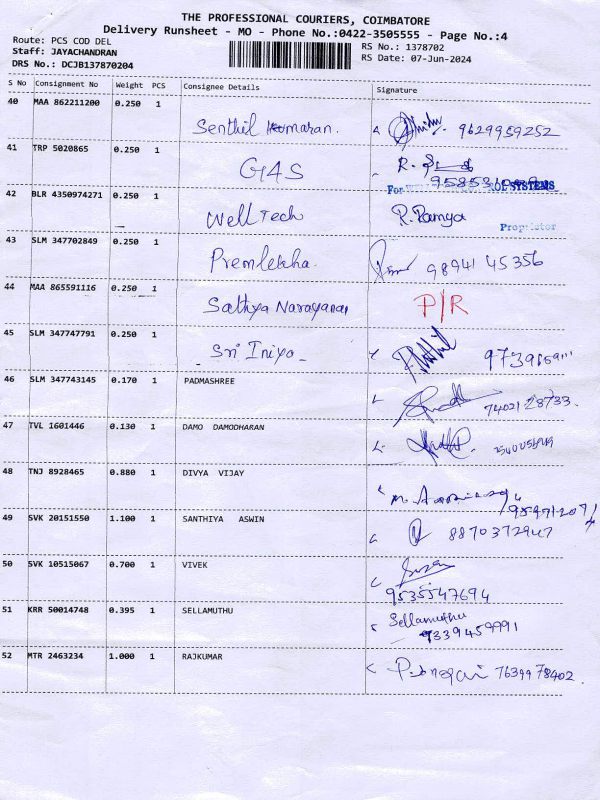 THE PROFESSIONAL COURIERS, COIMBATORE
Delivery Runsheet - MO - Phone No.:0422-3505555 - Page No.:4
Route: PCS COD DEL
Staff: JAYACHANDRAN
DRS No.: DCJB137870204
RS No.: 1378702
RS Date: 07-Jun-2024
S No Consignment No Weight PCS Consignee Details Signature
40 MAA 862211200 0.250 1 Senthil Kumaran. 9629959252
41 TRP 5020865 0.250 1 G4S R.
For SYSTEMS
42 BLR 4350974271 0.250 1 WellTech R. Ramya
Proprietor
43 SLM 347702849 0.250 1 Premlekha. 98941 45356
44 MAA 865591116 0.250 1 Sathya Narayanan P/R
45 SLM 347747791 0.250 1 Sri Iniyo
46 SLM 347743145 0.170 1 PADMASHREE 7402128733.
47 TVL 1601446 0.130 1 DAMO DAMODHARAN
48 TNJ 8928465 0.880 1 DIVYA VIJAY
49 SVK 20151550 1.100 1 SANTHIYA ASWIN 8870372947
50 SVK 10515067 0.700 1 VIVEK
9535547694
51 KRR 50014748 0.395 1 SELLAMUTHU Sellamuthu
9339459991
52 MTR 2463234 1.000 1 RAJKUMAR 7639978402.